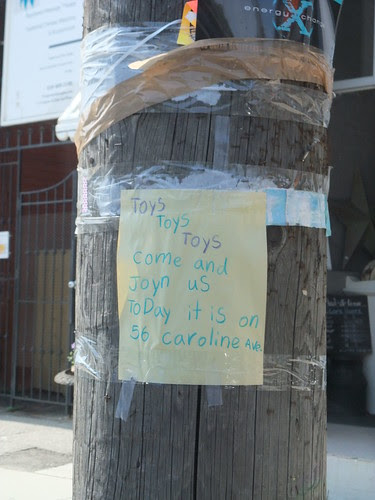 energy Xchange
Toys
Toys
Toys
come and
Joyn us
ToDay it is on
56 caroline Ave.